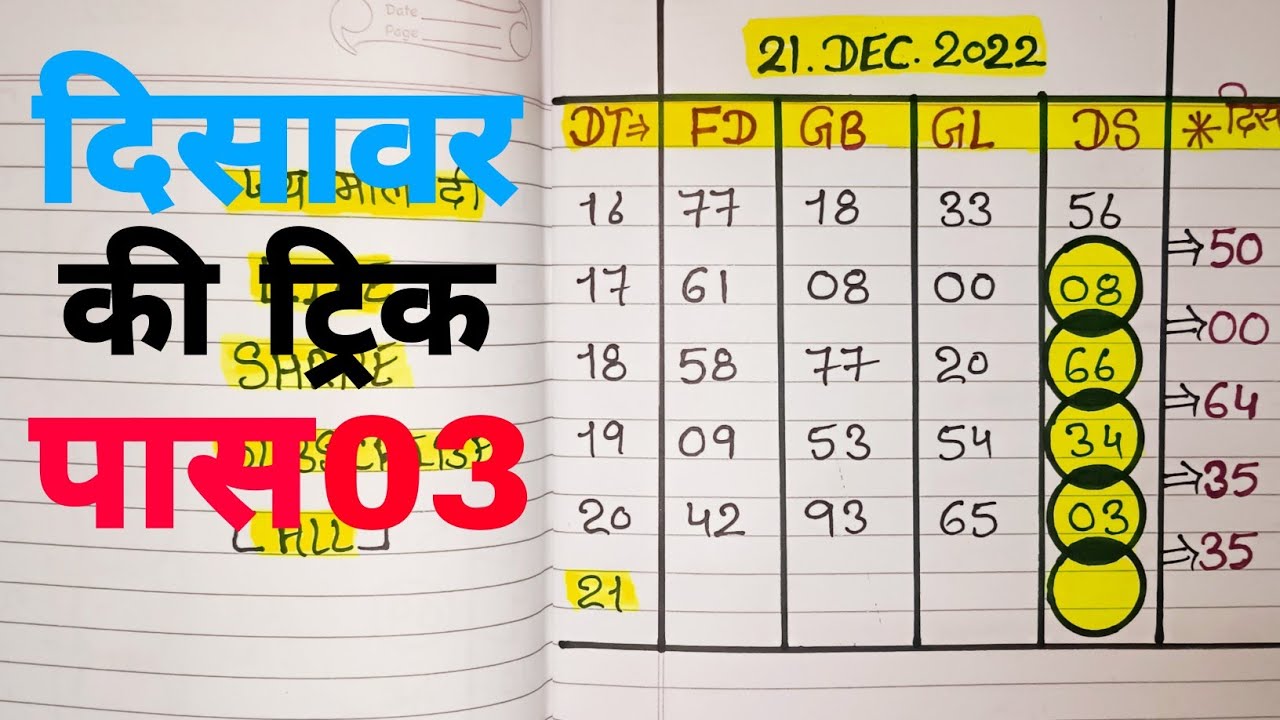 Date
Page
दिसावर
की ट्रिक
पास03
SHARE
ALL
21. DEC. 2022
DT⇒ FD GB GL DS *दिस
16 77 18 33 56
⇒50
17 61 08 00 08
⇒00
18 58 77 20 66
⇒64
19 09 53 54 34
⇒35
20 42 93 65 03
⇒35
21